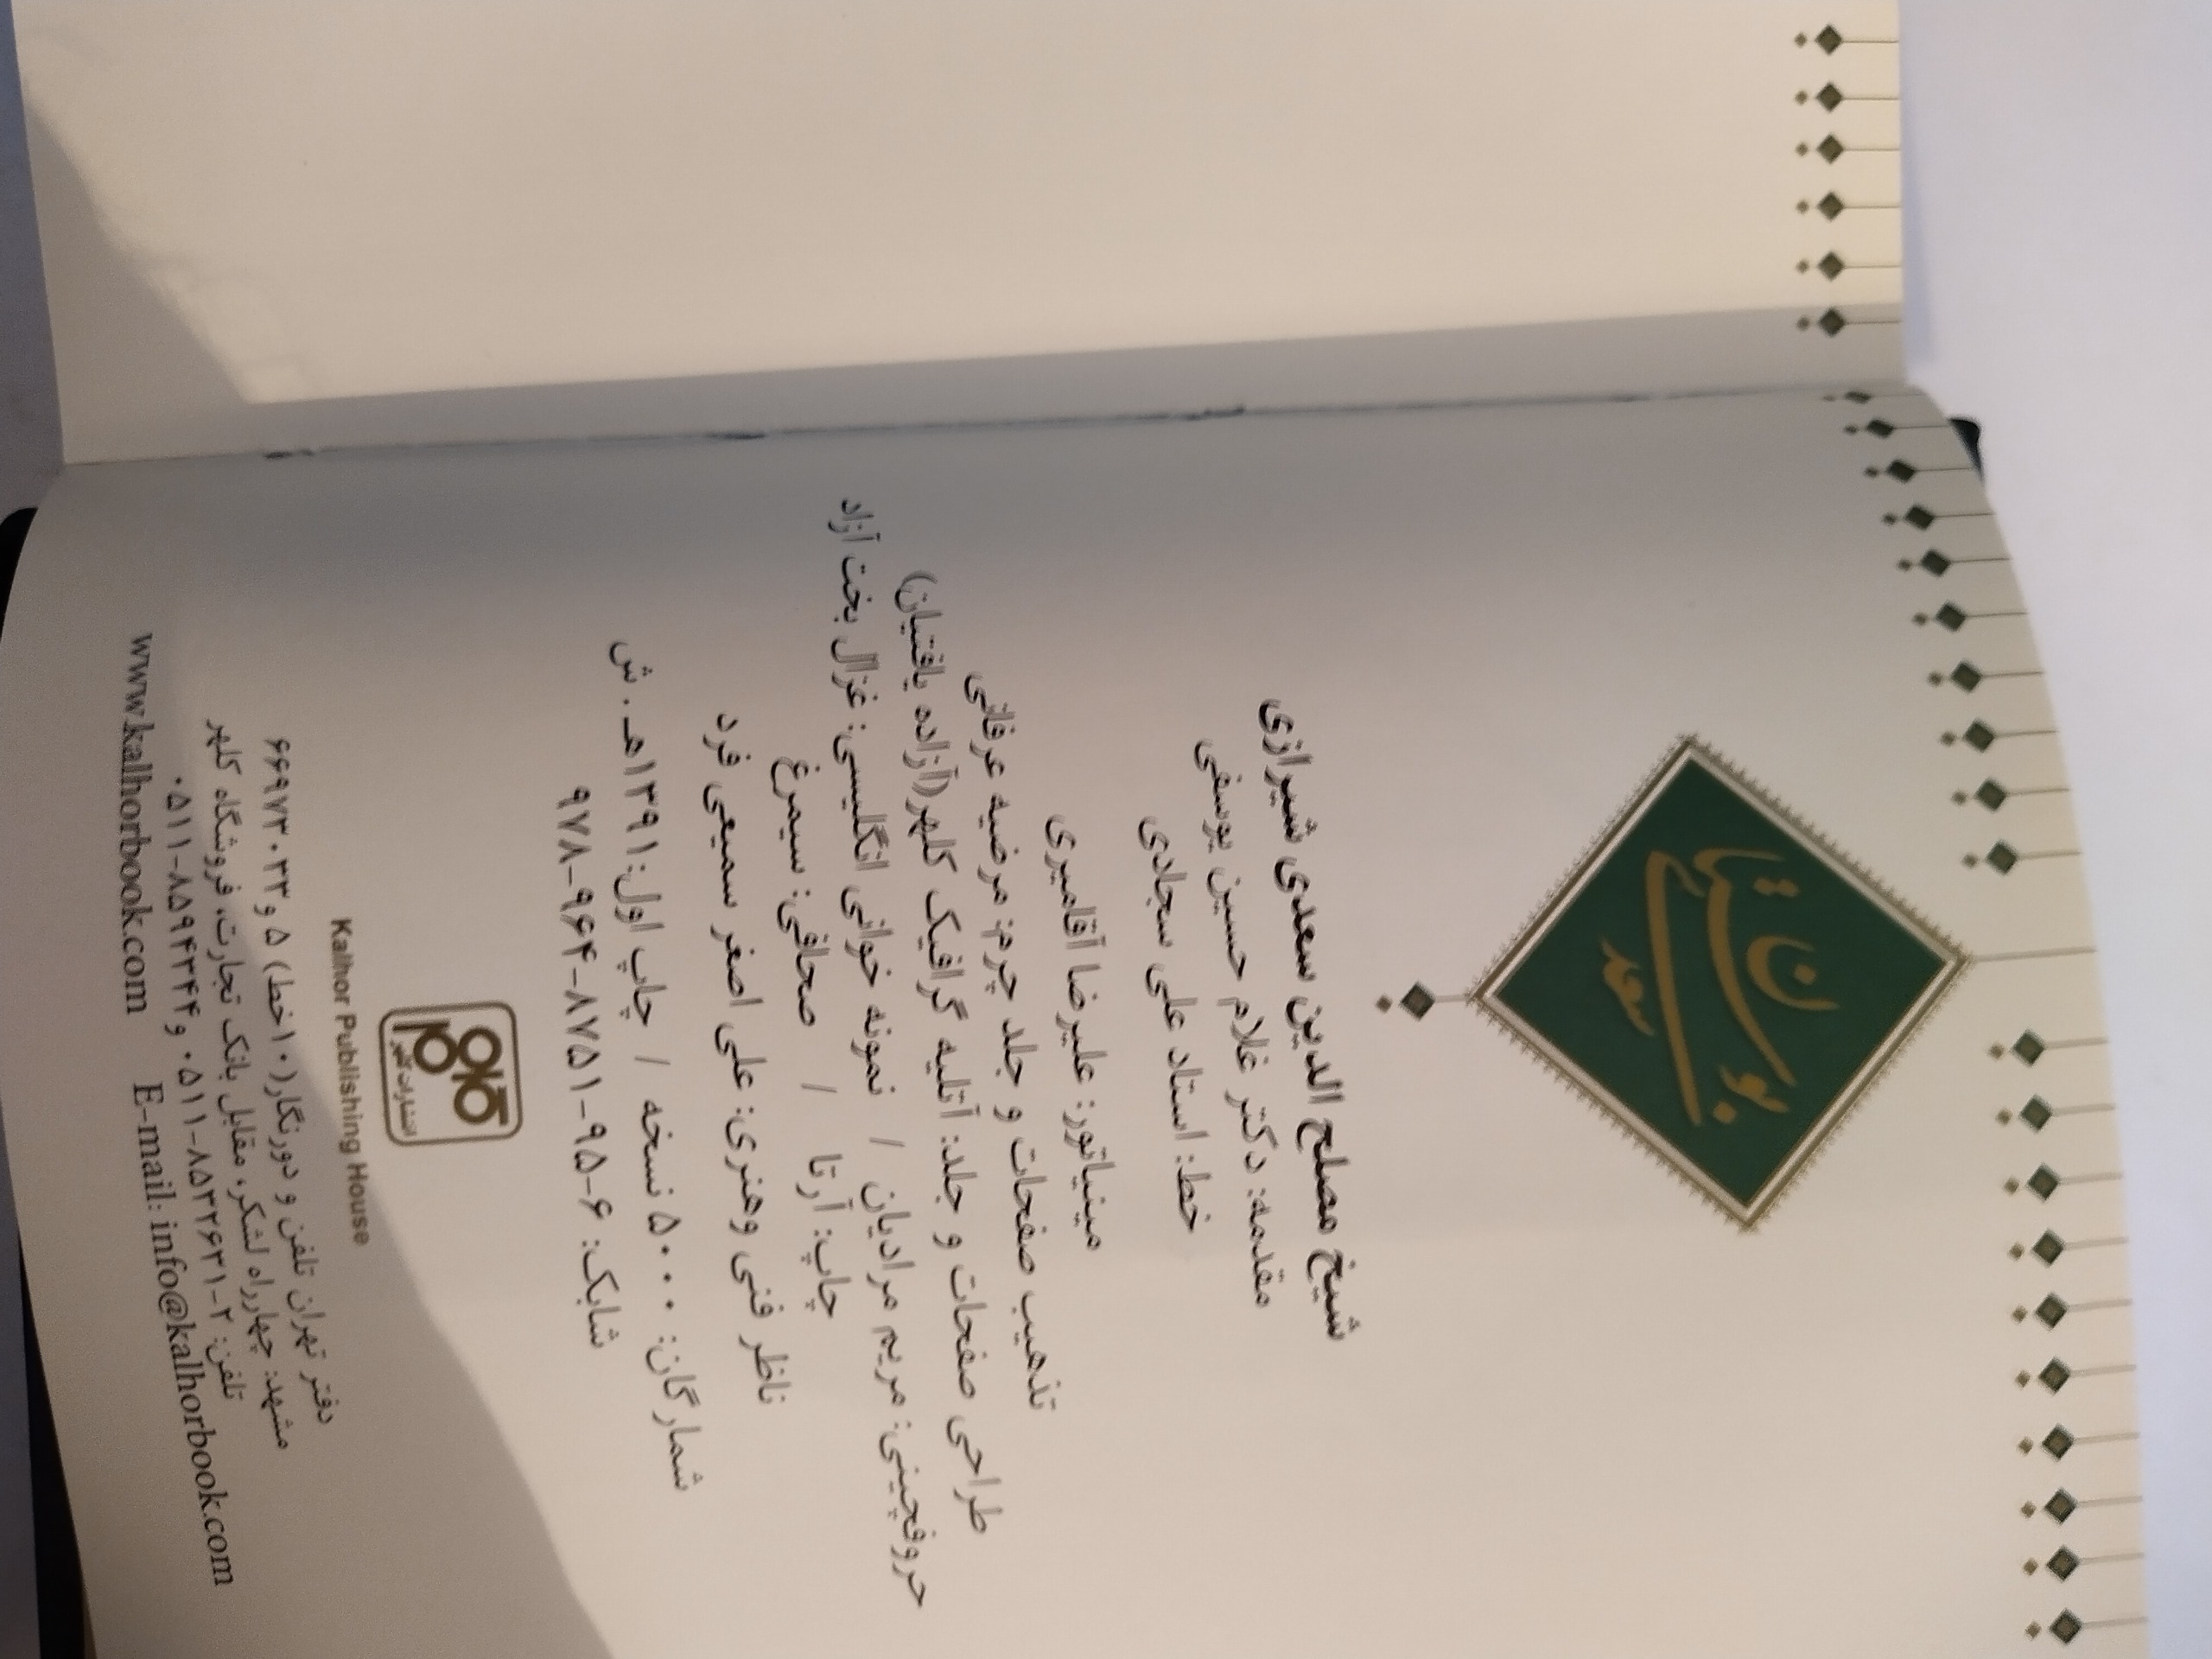 بوستان
سعدی
شیخ مصلح الدین سعدی شیرازی
مقدمه: دکتر غلام حسین یوسفی
خط: استاد علی سجادی
مینیاتور: علیرضا آقامیری
تذهیب صفحات و جلد چرم: مرضیه عرفانی
طراحی صفحات و جلد: آتلیه گرافیک کلهر(آزاده یافتیان)
حروفچینی: مریم مرادیان / نمونه خوانی انگلیسی: غزال بخت آزاد
چاپ: آرتا / صحافی: سیمرغ
ناظر فنی وهنری: علی اصغر سمیعی فرد
شمارگان: ۵۰۰۰ نسخه / چاپ اول: ۱۳۹۱هـ . ش
شابک: ۶-۹۵-۸۷۵۱-۹۶۴-۹۷۸
کلهر
انتشارات کلهر
Kalhor Publishing House
دفتر تهران تلفن و دورنگار(۱۰خط) ۵ و ۶۶۹۷۳۰۳۳
مشهد: چهارراه لشکر، مقابل بانک تجارت، فروشگاه کلهر
تلفن: ۲-۰۵۱۱-۸۵۳۲۶۳۱ و ۰۵۱۱-۸۵۹۴۳۴۴
www.kalhorbook.com E-mail: info@kalhorbook.com